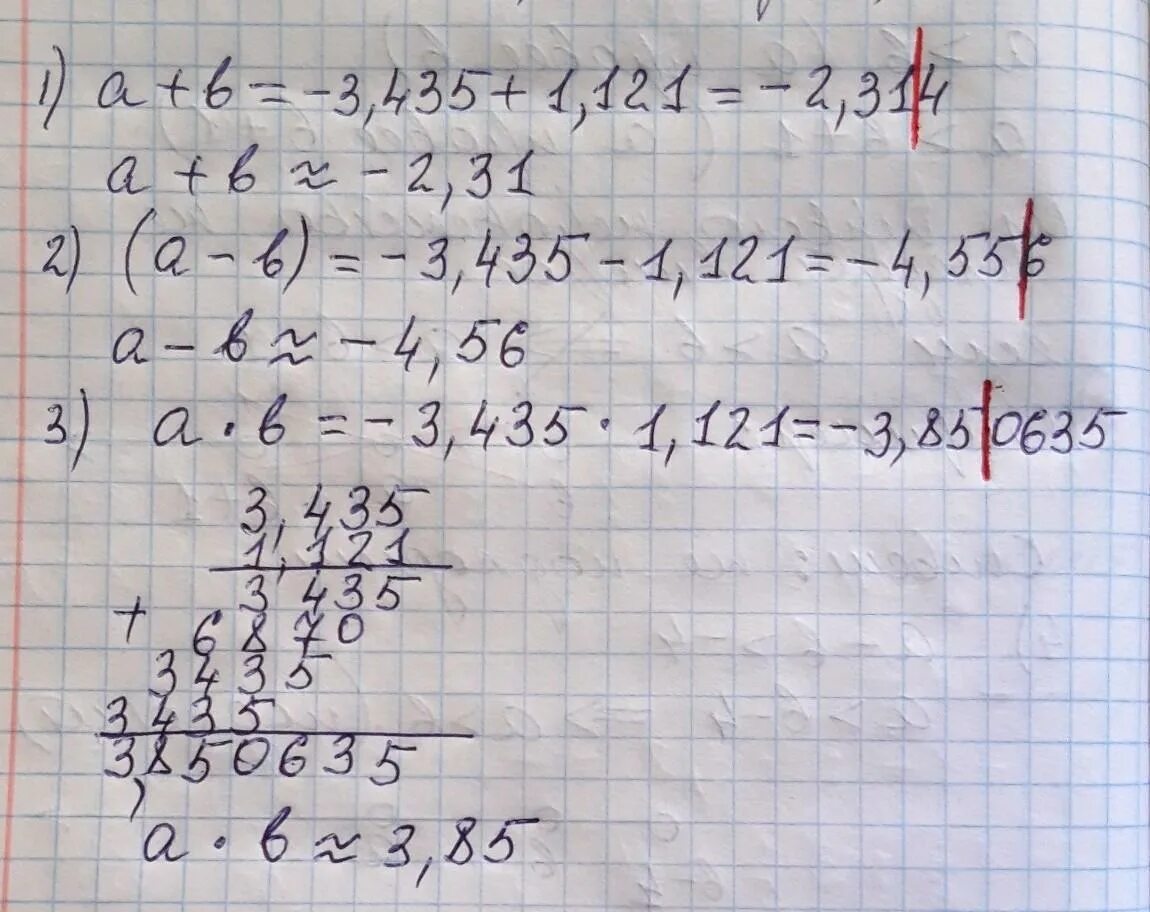 1) a + в = -3,435 + 1,121 = -2,314
a + в ≈ -2,31
2) (a - в) = -3,435 - 1,121 = -4,556
a - в ≈ -4,56
3) a · в = -3,435 · 1,121 = -3,850635
3,435
1,121
3 435
+ 6 8 7 0
3 4 3 5
3 4 3 5
3,850635
a · в ≈ 3,85